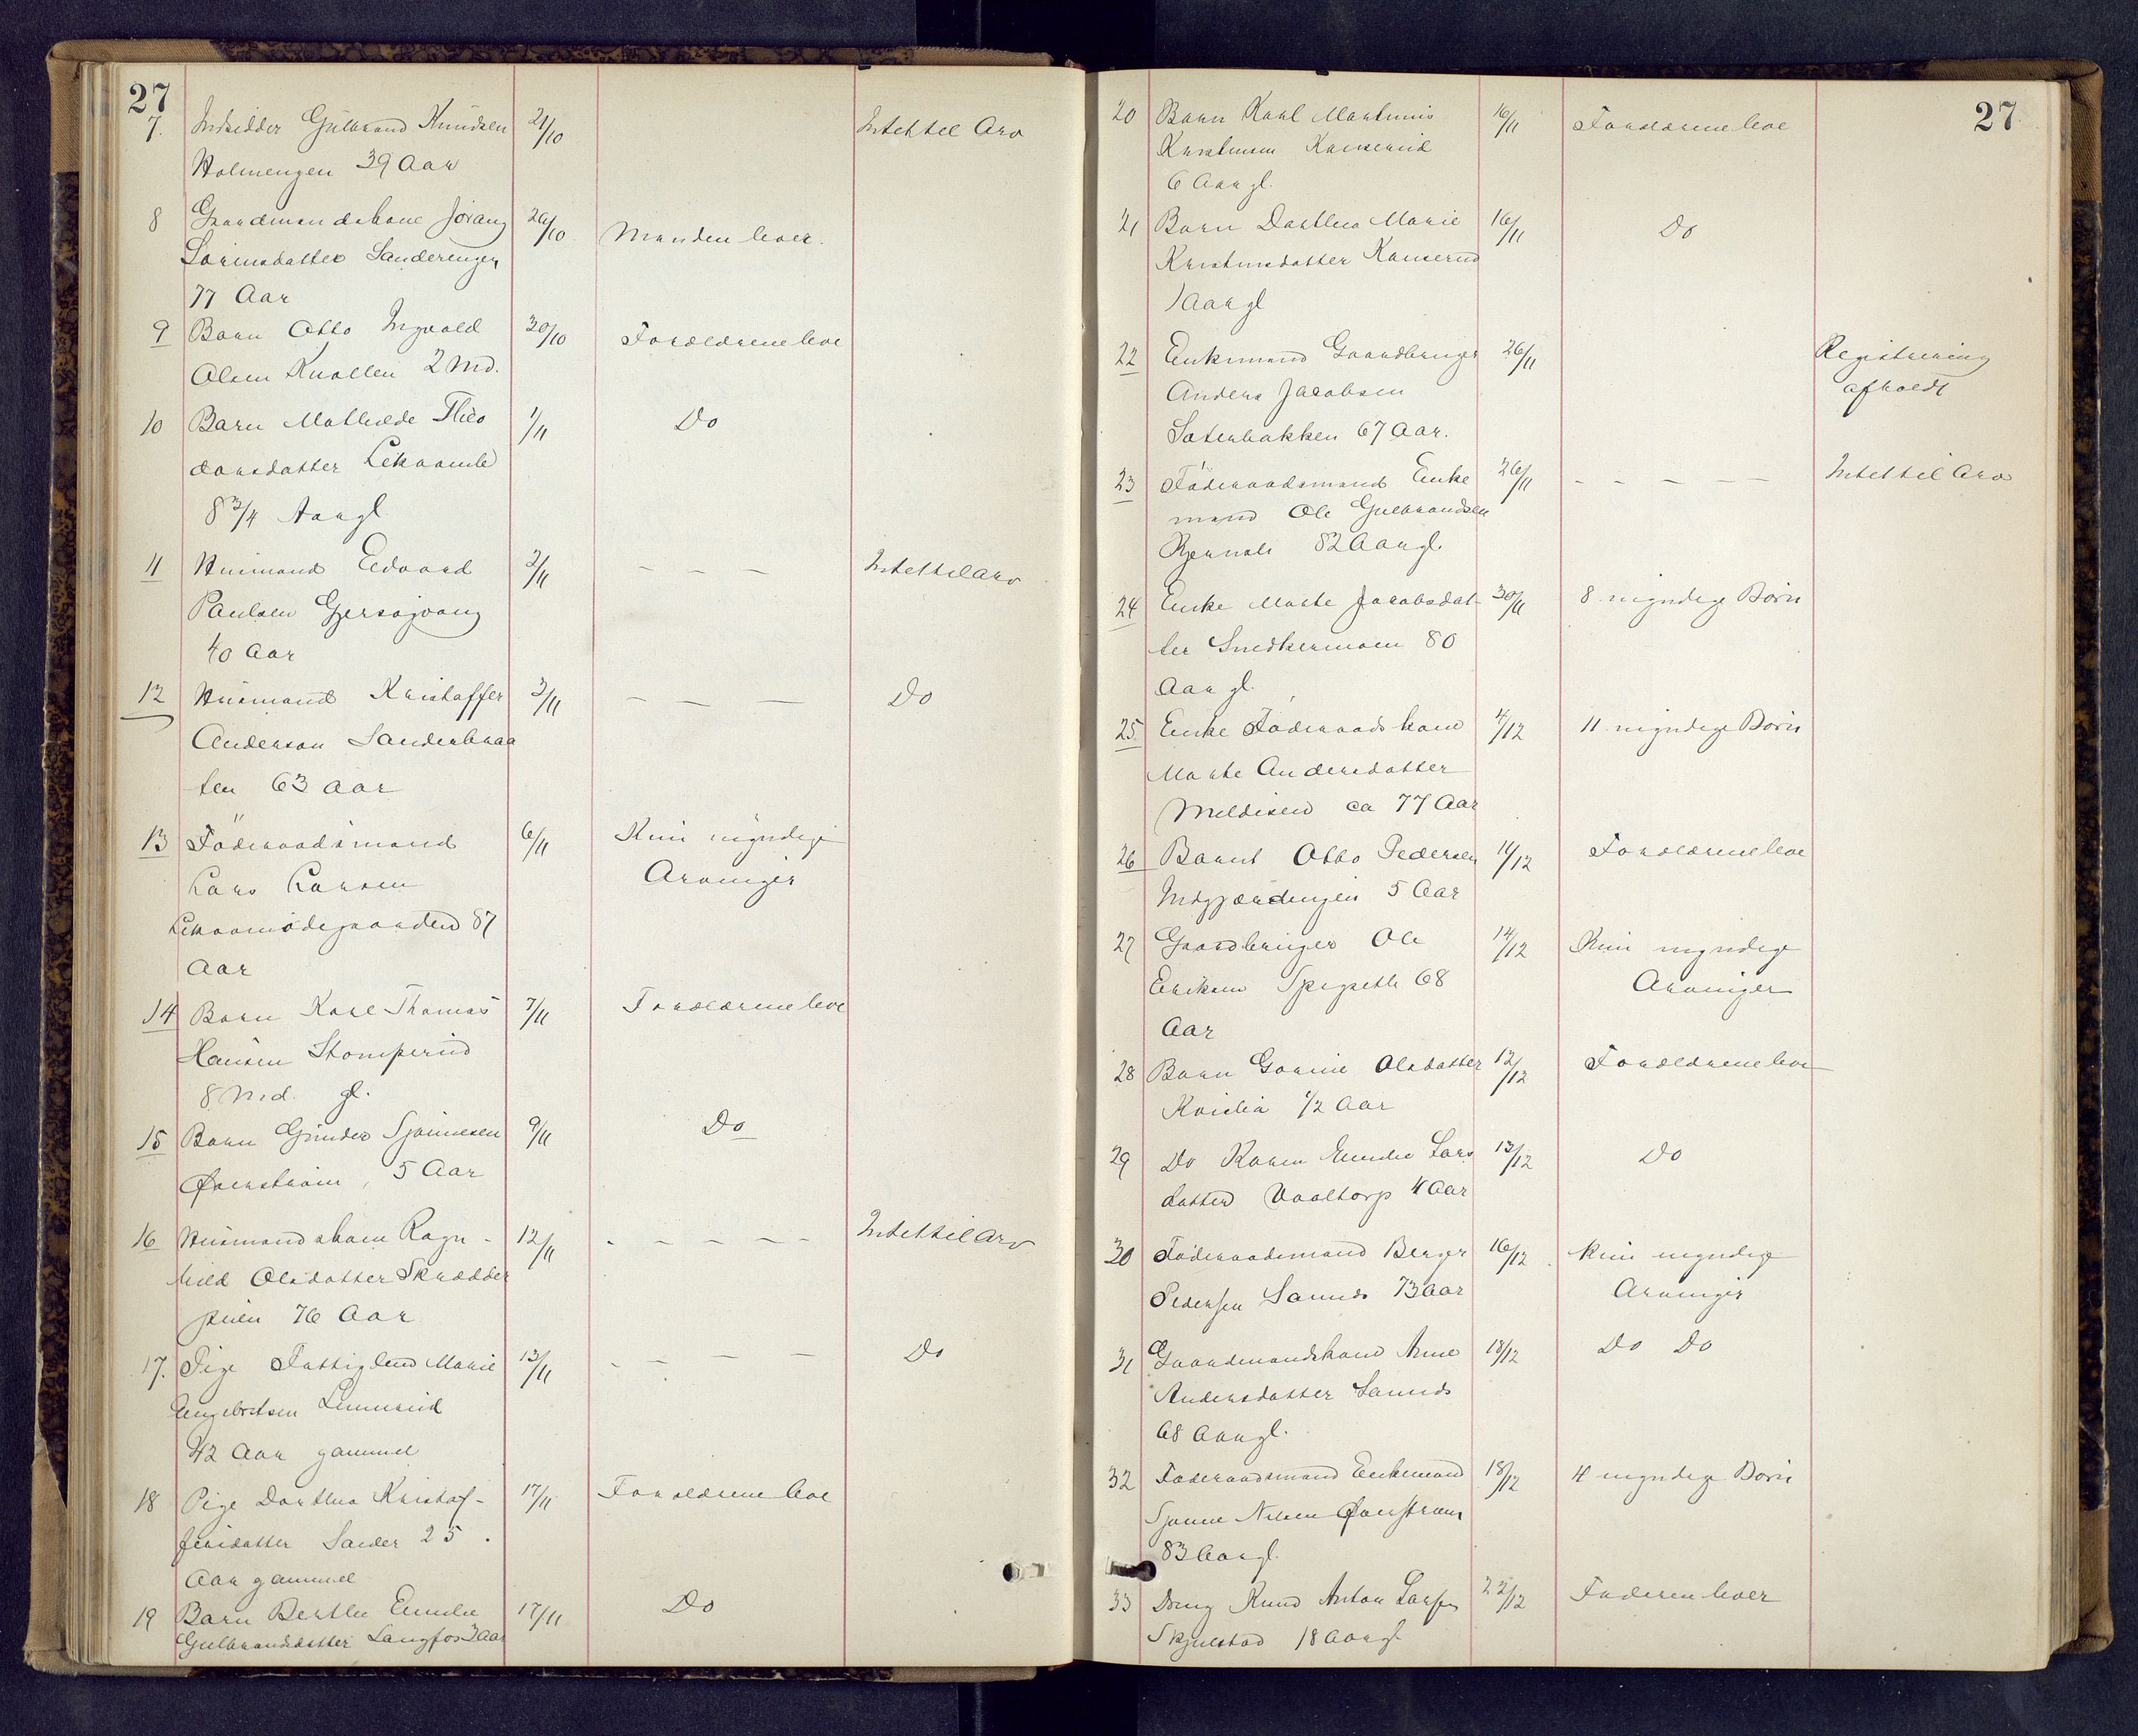 27
7. Indsidder Gulbrand Knudsen 21/10 Intet til Arv
Holmengen 39 Aar
8 Gaardmandskone Jørang 26/10 Manden lever.
Larinsdatter Sanderengen
77 Aar
9 Barn Otto Ingvald 30/10 Forældrene leve
Olsen Knollen 2 Md.
10 Barn Mathilde Theo 1/11 Do
dorsdatter Lekvamb
8 3/4 Aar gl
11 Husmand Edvard 2/11 — — — Intet til Arv
Paulsen Gjersøjvang
40 Aar
12 Husmand Kristoffer 3/11 — — — Do
Anderson Sanderbraa
ten 63 Aar
13 Föderaadsmand 6/11 Kun myndige
Lars Larsen Arvinger
Lekvamødegaarden 87
Aar
14 Barn Karl Thomas 7/11 Forældrene leve
Hansen Stomperud
8 Md. gl.
15 Barn Gunder Sjønnesen 9/11 Do
Fjernstrøm, 5 Aar
16 Husmandskone Ragn- 12/11 - — — — — Intet til Arv
hild Olsdatter Skrædder
pluen 76 Aar
17. Pige Fattiglem Marie 13/11 — — — — Do
Engebretsen Linnerud
42 Aar gammel
18 Pige Dorthea Kristof- 17/11 Forældrene leve
fersdatter Sander 25.
Aar gammel
19 Barn Berthe Emilie 17/11 Do
Gulbrandsdatter Langfos 3 Aar
27
20 Barn Karl Martinus 16/11 Forældrene leve
Kristensen Kauserud
6 Aar gl.
21 Barn Dorthea Marie 16/11 Do
Kristensdatter Kauserud
1 Aar gl
22 Enkemand Gaardbruger 26/11 Registrering
Anders Jacobsen afholdt
Saterbakken 67 Aar.
23 Föderaadsmand Enke 26/11 — — — — — Intet til Arv
mand Ole Gulbrandsen
82 Aar gl.
24 Enke Marte Jacobsdat- 30/11 8 myndige Börn
ter Snedkermoen 80
Aar gl.
25. Enke Föderaadskone 4/12 11 myndige Börn
Marte Andersdatter
Meldisen ca 77 Aar
26 Barnet Otto Pedersen 11/12 Forældrene leve
Indgjærdingen 5 Aar
27 Gaardbruger Ole 14/12 Kun myndige
Eriksen Spigseth 68 Arvinger
Aar
28 Barn Gorine Olsdatter 12/12 Forældrene leve
Kvislia 1/2 Aar
29 Do Karen Emilie Lars 13/12 Do
datter Vaaltorp 4 Aar
30 Föderaadsmand Berger 16/12 Kun myndige
Pedersen Saunds 73 Aar Arvinger
31 Gaardmandskone Anne 18/12 Do Do
Andersdatter Saunds
68 Aar gl.
32 Föderaadsmand Enkemand 18/12 4 myndige Börn
Sjønne Nilsen Fjernstrøm
83 Aar gl.
33 Dreng Knud Anton Larsen 22/12 Faderen lever
Skjulstad 18 Aar gl